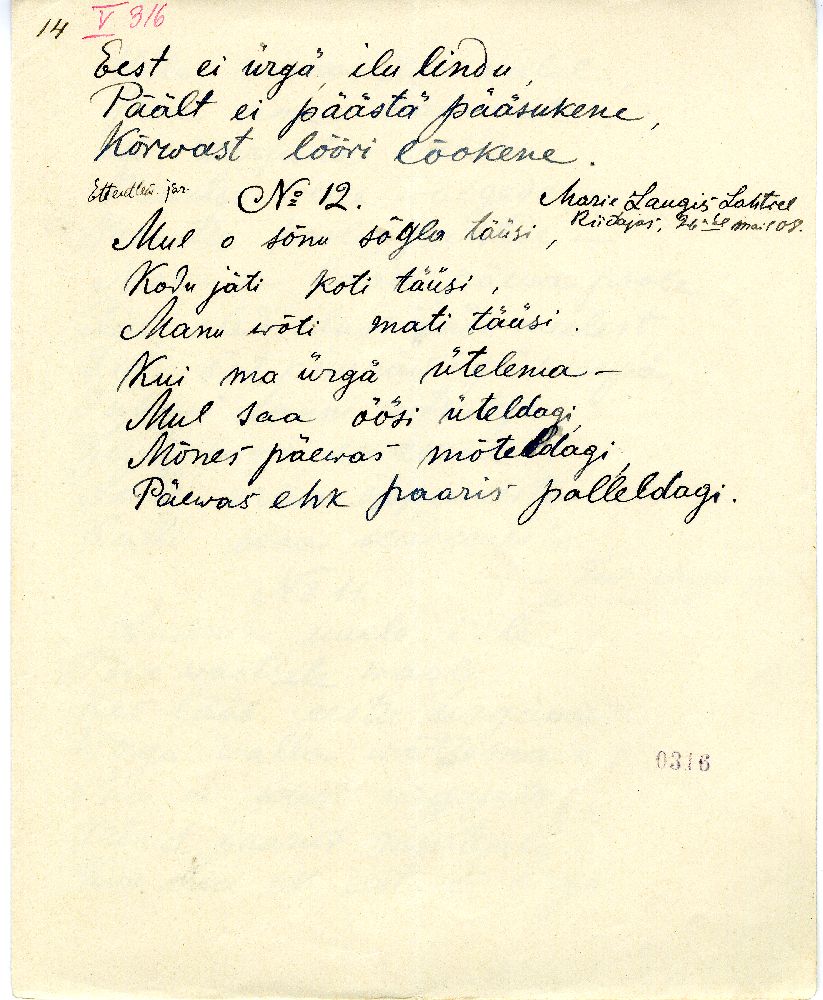 14 V 316
Eest ei ürgä ilu lindu,
Päält ei päästä pääsukene,
Kõrwast lööri lõokene.
No 12. Marie Laugis Lahtsel
Riidajas, 26 mail 08.
Mul o sõnu sõgla täüsi,
Kodu jäti koti täüsi,
Manu wõti mati täüsi.
Kui ma ürgä ütelema –
Mul saa öösi üteldagi,
Mõnes päewas mõteldagi,
Päewas ehk paaris palleldagi.
0316